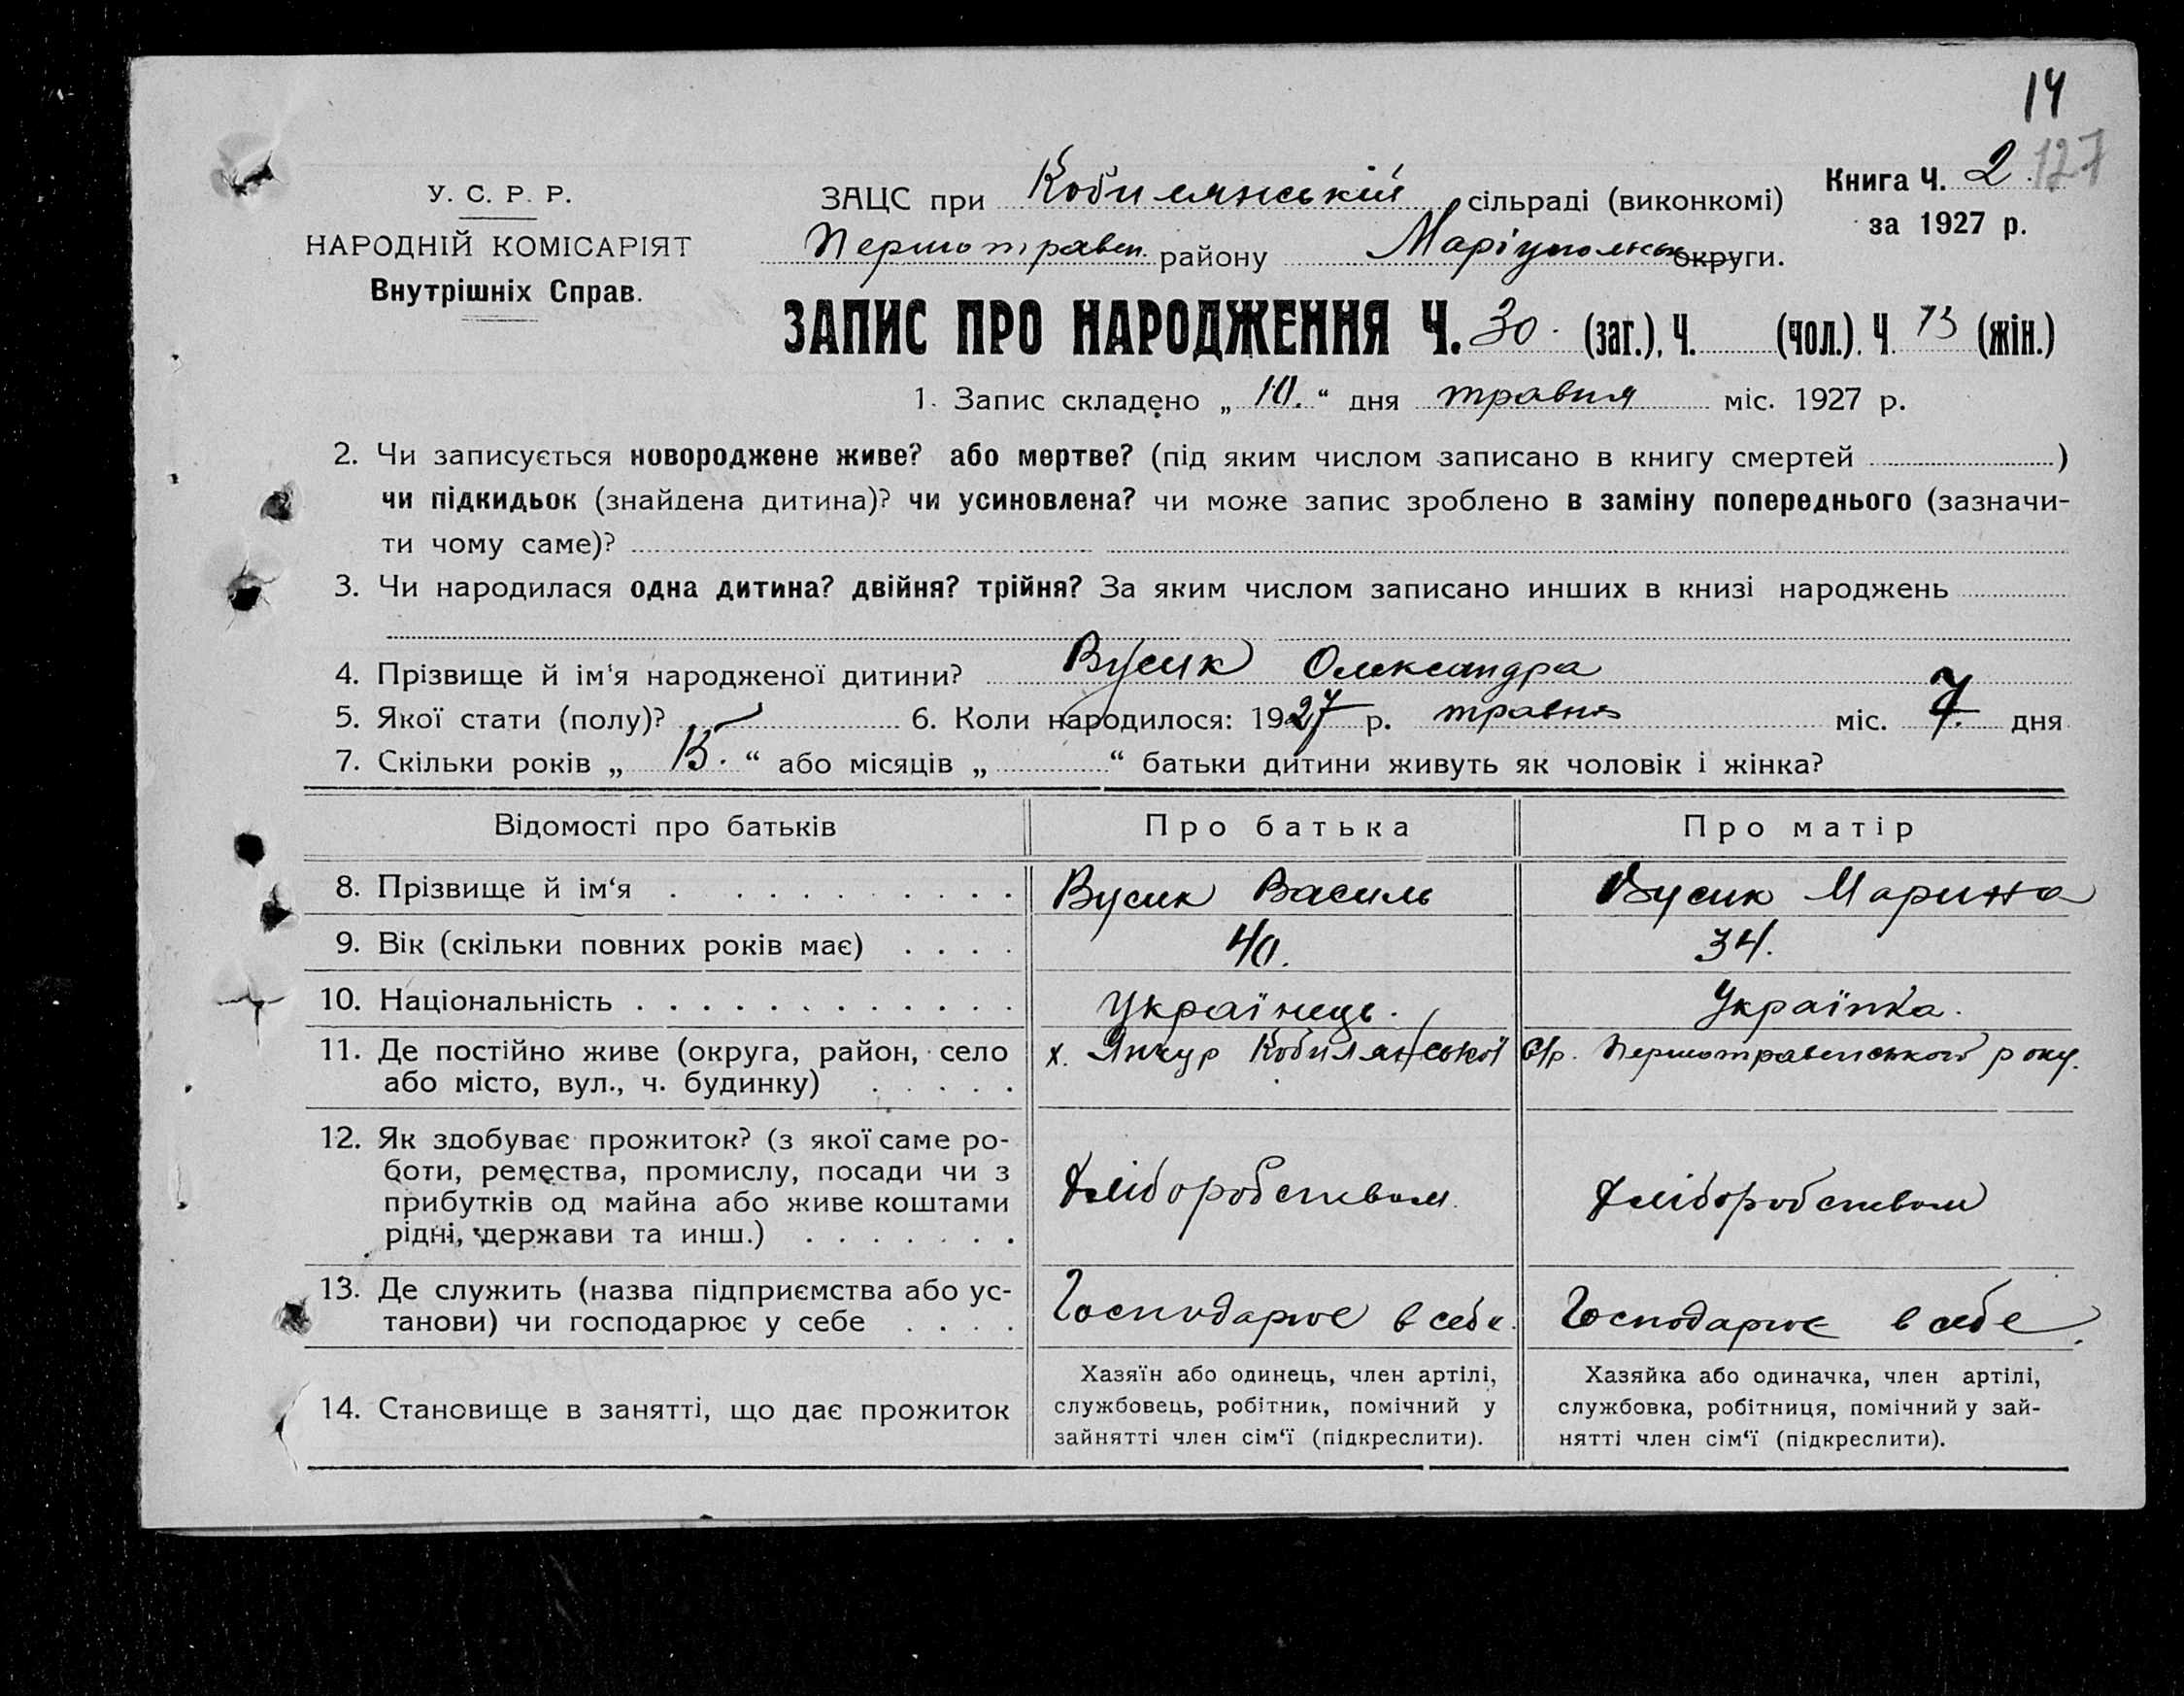 14
127
У. С. Р. Р.
НАРОДНІЙ КОМІСАРІЯТ
Внутрішніх Справ.
ЗАЦС при Кобилянській сільраді (виконкомі)
Першотравен. району Маріупольськ округи.
Книга Ч. 2
за 1927 р.
ЗАПИС ПРО НАРОДЖЕННЯ Ч. 30. (заг.), Ч. (чол.). Ч 13 (жін.)
1. Запис складено „ 10. “ дня травня міс. 1927 р.
2. Чи записується новороджене живе? або мертве? (під яким числом записано в книгу смертей )
чи підкидьок (знайдена дитина)? чи усиновлена? чи може запис зроблено в заміну попереднього (зазначи-
ти чому саме)?
3. Чи народилася одна дитина? двійня? трійня? За яким числом записано инших в книзі народжень
4. Прізвище й ім'я народженої дитини? Вусик Олександра
5. Якої стати (полу)? 6. Коли народилося: 1927 р. травня міс. 7. дня
7. Скільки років „ 13. “ або місяців „ “ батьки дитини живуть як чоловік і жінка?
Відомості про батьків Про батька Про матір
8. Прізвище й ім‘я Вусик Василь Вусик Марина
9. Вік (скільки повних років має) 40. 34.
10. Національність Українець. Українка.
11. Де постійно живе (округа, район, село х. Кобилянської с/р. Першотравенського
або місто, вул., ч. будинку)
12. Як здобуває прожиток? (з якої саме ро-
боти, ремества, промислу, посади чи з Хліборобством Хліборобством
прибутків од майна або живе коштами
рідні, держави та инш.)
13. Де служить (назва підприємства або ус- Господарює в себе. Господарює в себе.
танови) чи господарює у себе
14. Становище в занятті, що дає прожиток
Хазяїн або одинець, член артілі,
службовець, робітник, помічний у
зайнятті член сім‘ї (підкреслити).
Хазяйка або одиначка, член артілі,
службовка, робітниця, помічний у зай-
нятті член сім‘ї (підкреслити).